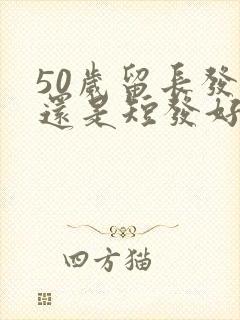 50歲留長發
還是短發好
四方猫